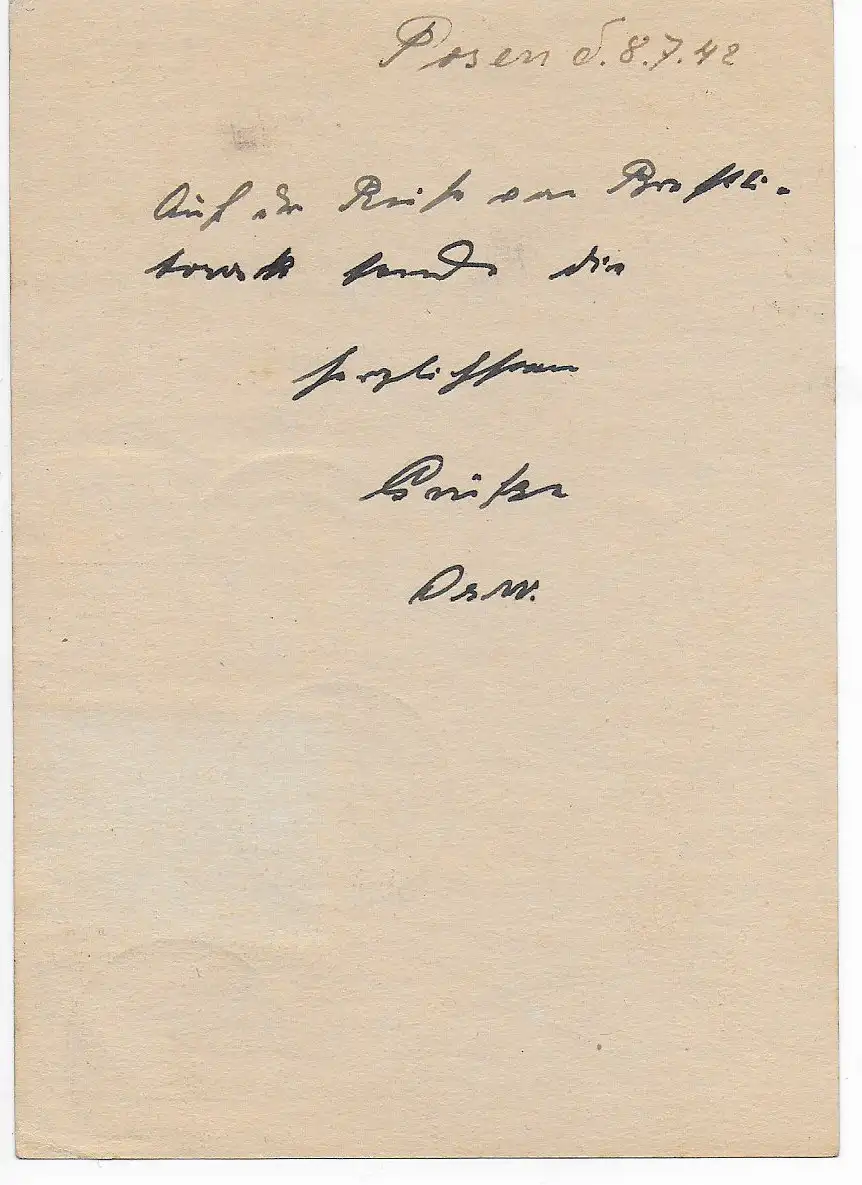 Posen d. 8.7.42
Auf der Reise von Brest Li-
towsk sende die
herzlichsten
Grüße
Osw.